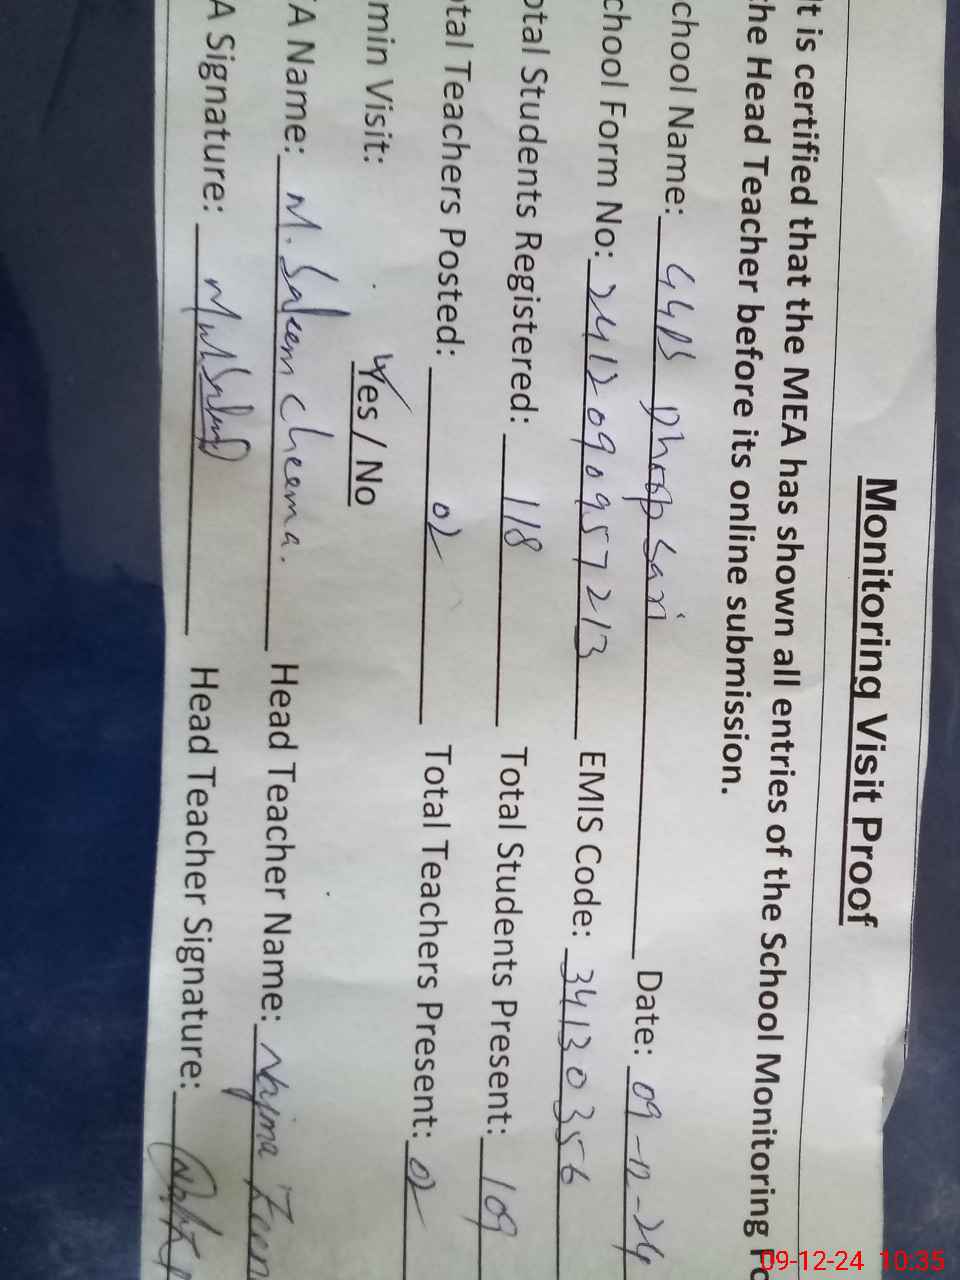 Monitoring Visit Proof
It is certified that the MEA has shown all entries of the School Monitoring Fo
the Head Teacher before its online submission.
chool Name: GGPS Dhoop Sari Date: 09-12-24
chool Form No: 2412090957213 EMIS Code: 34130356
otal Students Registered: 118 Total Students Present: 109
otal Teachers Posted: 02 Total Teachers Present: 02
min Visit: Yes / No
A Name: M. Saleem Cheema. Head Teacher Name: Najma
A Signature: Head Teacher Signature:
09-12-24 10:35